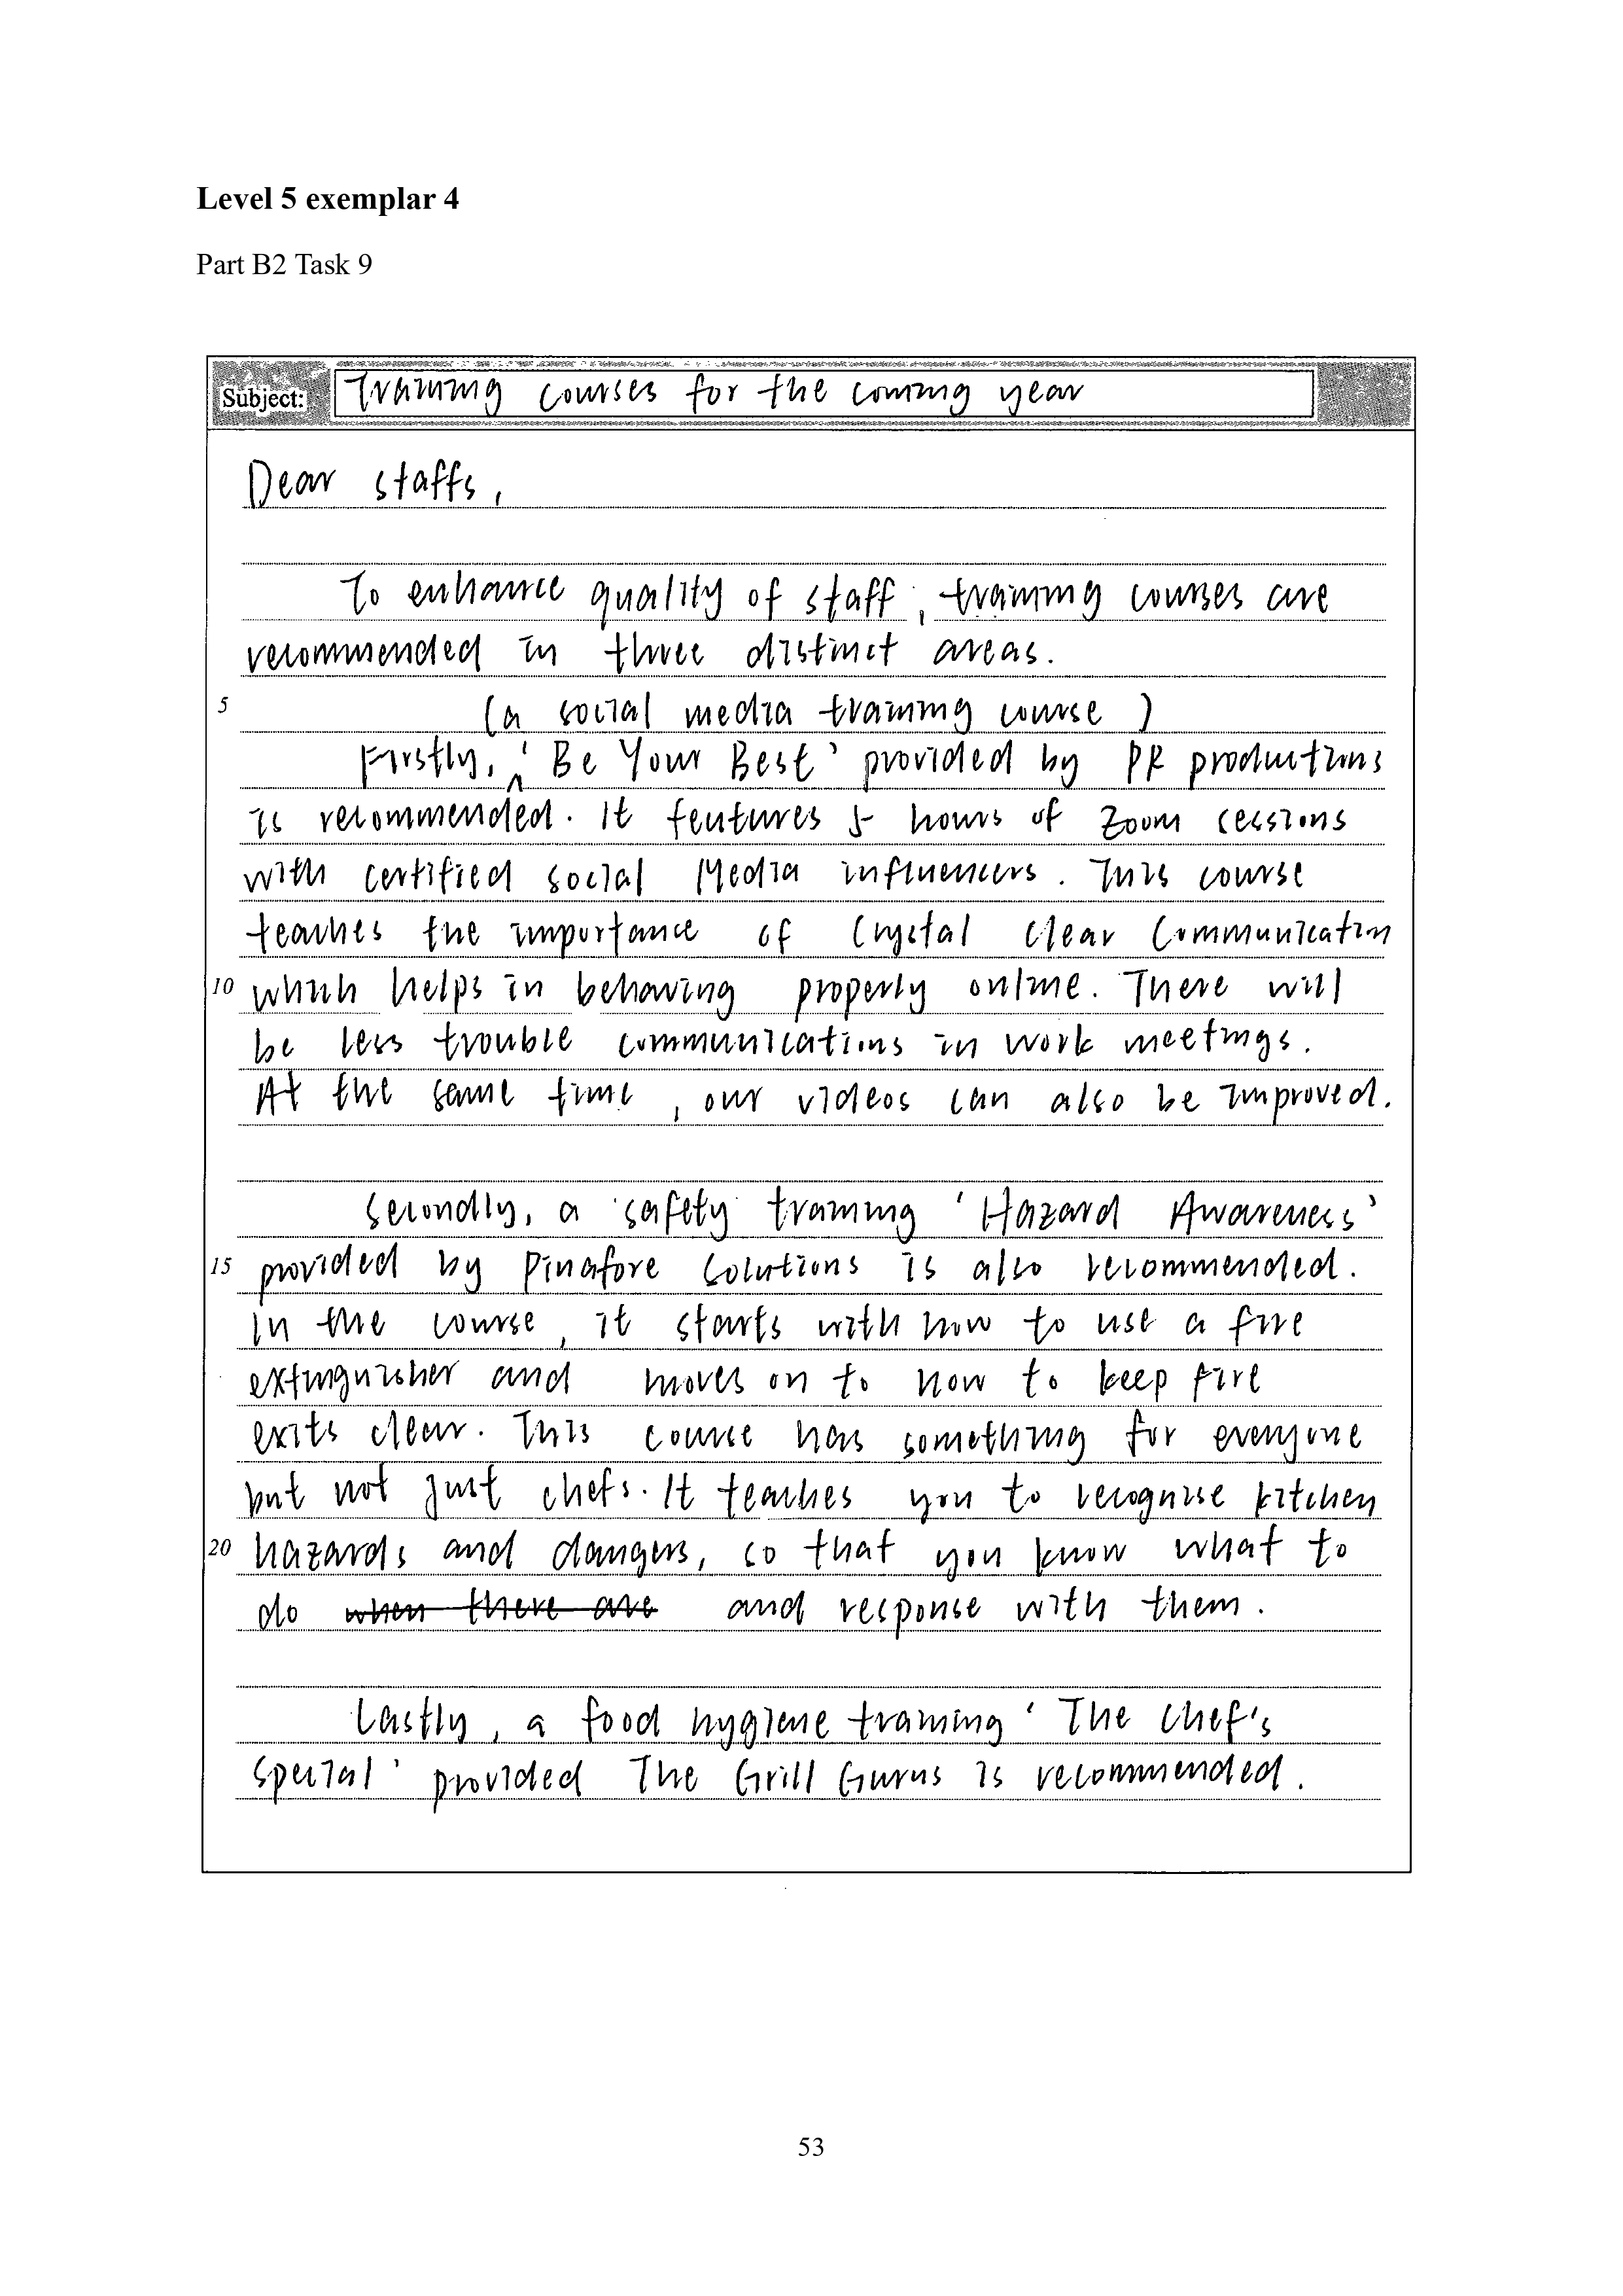 Level 5 exemplar 4
Part B2 Task 9
Subject: Training courses for the coming year
Dear staffs,
To enhance quality of staff, training courses are
recommended in three distinct areas.
5
(a social media training course)
Firstly, ‸ 'Be Your Best' provided by PR productions
is recommended. It features 5 hours of Zoom sessions
with certified social Media influencers. This course
teaches the importance of Crystal Clear Communication
10 which helps in behaving properly online. There will
be less trouble communications in work meetings.
At the same time, our videos can also be improved.
Secondly, a safety training 'Hazard Awareness'
15 provided by Pinafore Solutions is also recommended.
In the course, it starts with how to use a fire
extinguisher and moves on to how to keep fire
exits clear. This course has something for everyone
but not just chefs. It teaches you to recognise kitchen
20 hazards and dangers, so that you know what to
do when there are and response with them.
Lastly, a food hygiene training 'The Chef's
Special' provided The Grill Gurus is recommended.
53